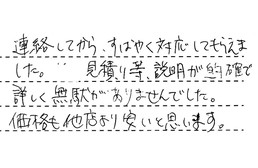 連絡してから、すばやく対応してもらえま
した。 見積り等、説明が的確で
詳しく無駄がありませんでした。
価格も他店より安いと思います。